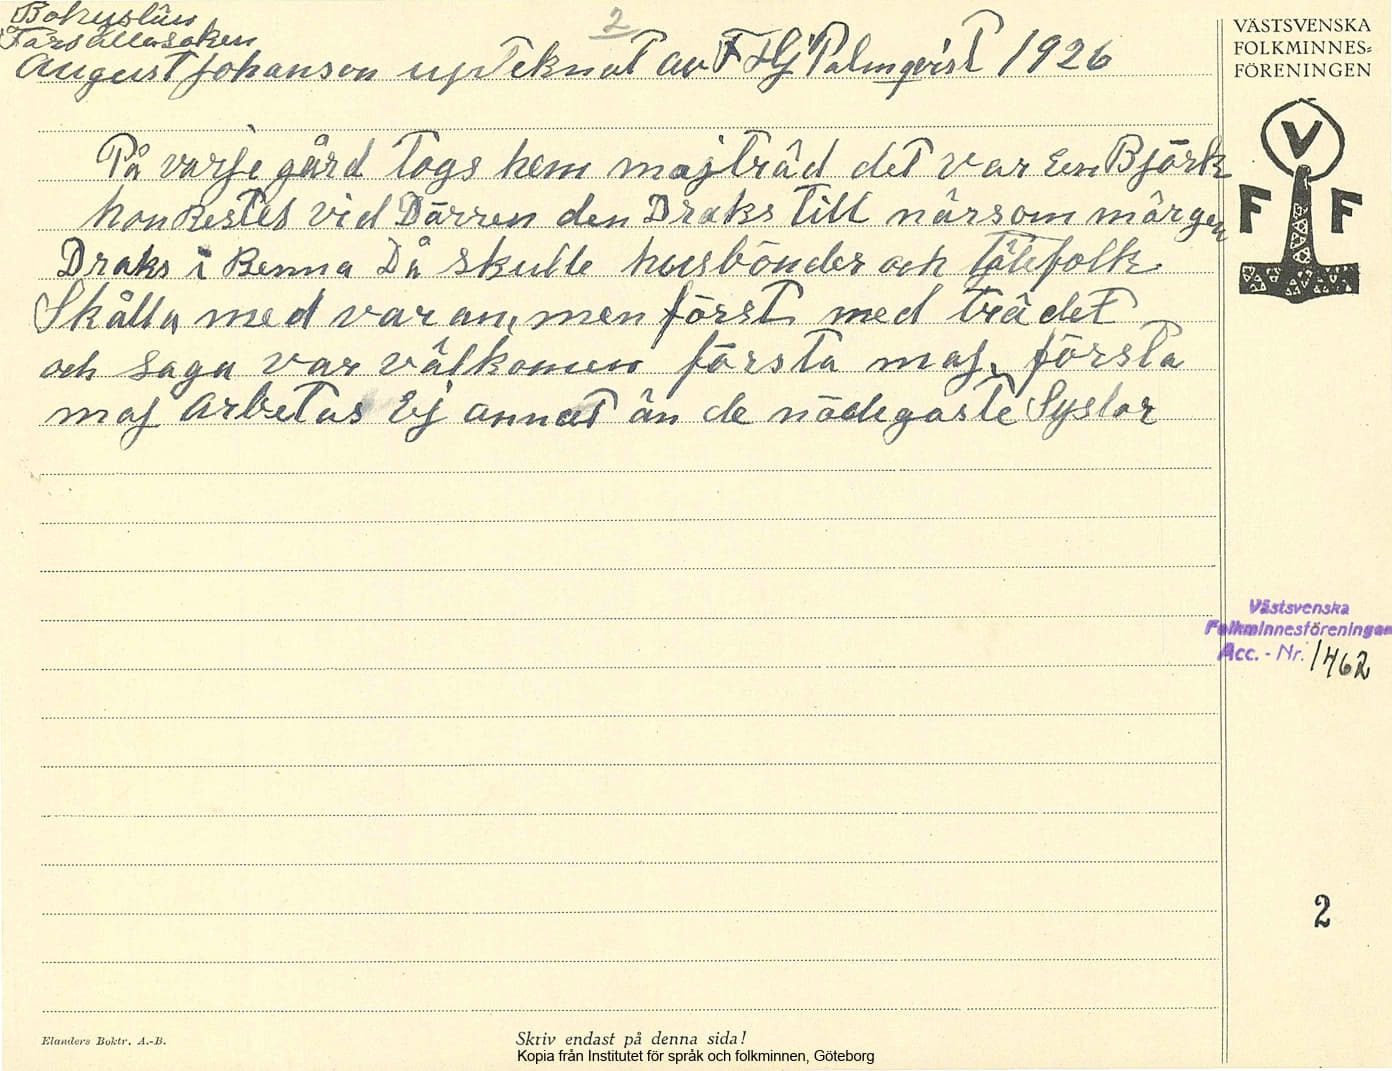 Bohuslän
Färs ällasoken
2
August Johanson upTeknat av F Hj Palmqvist 1926
På varje gård Togs hem majträd det var Een Björk
hon Restes vid Dörren den Draks Till närsom mårgen
Draks i Renna Då skulle husbönder och Täefolk
Skålla med varan, men först med trädet
och saga var välkomen första maj, första
maj arbetas Ej annat än de nödegaste Syslor
VÄSTSVENSKA
FOLKMINNES=
FÖRENINGEN
V
F F
Västsvenska
Folkminnesföreningen
Acc. - Nr. 1462
2
Elanders Boktr. A.-B.
Skriv endast på denna sida!
Kopia från Institutet för språk och folkminnen, Göteborg